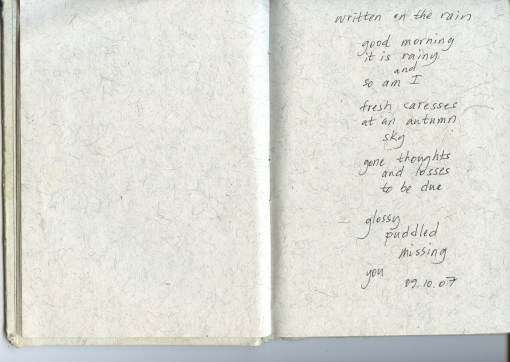 written on the rain
good morning
it is rainy
and
so am I
fresh caresses
at an autumn
sky
gone thoughts
and losses
to be due
glossy
puddled
missing
you
09.10.07